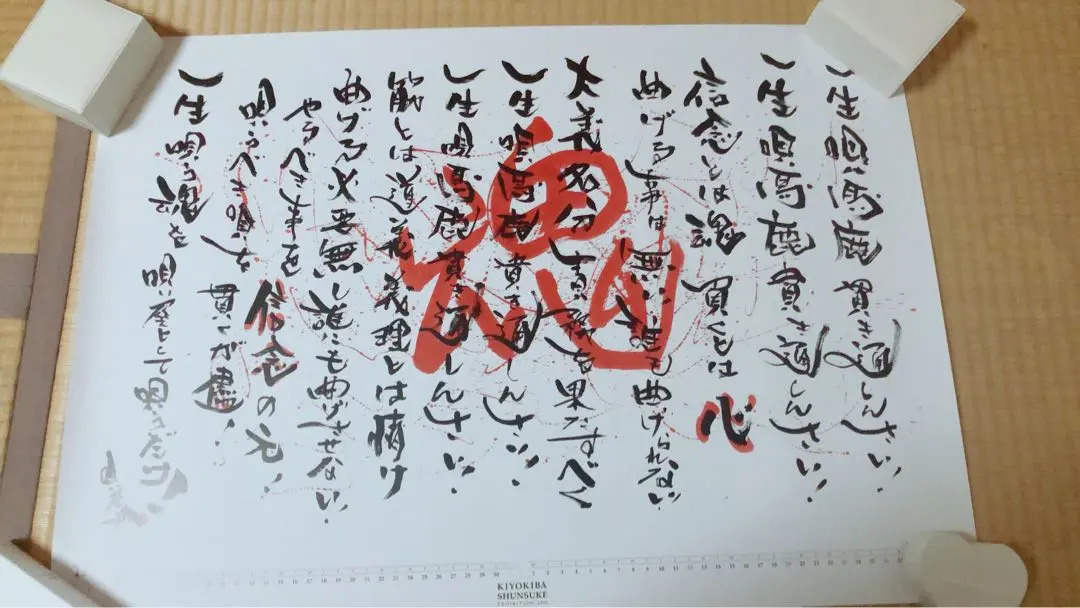 一生唄馬鹿貫き通しんさい!
一生唄馬鹿貫き通しんさい!
信念とは魂 買くとは 心
曲げる事は無い 誰も曲げられない
大義名分 責務を果たすべく
一生唄馬鹿貫き通しんさい!
一生唄馬鹿貫き通しんさい!
筋とは道義 義理とは情け
曲げる必要無し 誰にも曲げさせない
やるべき事を 信念の元!
唄うべき唄を 貫くが
一生 唄う 唄 として 唄うだけ
魂
KIYOKIBA
SHUNSUKE
EXHIBITION